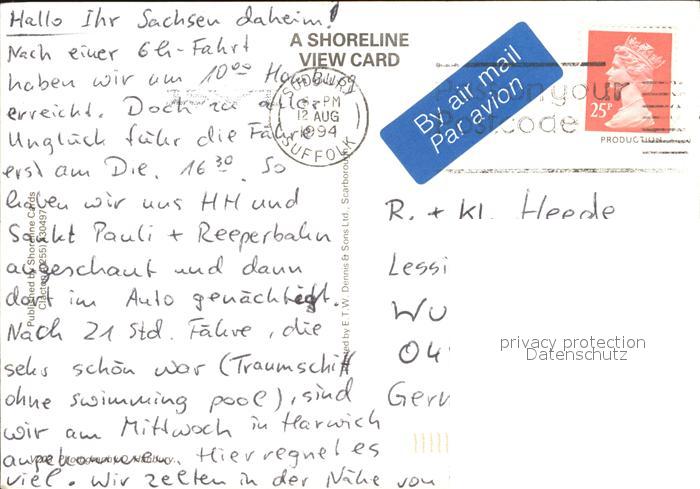 Hallo Ihr Sachsen daheim!
Nach einer 6h-Fahrt
haben wir um 10⁰⁰ Hamburg
erreicht. Doch zu allem
Unglück fuhr die Fähre
erst am Die. 16³⁰. So
haben wir uns HH und
Sankt Pauli + Reeperbahn
angeschaut und dann
dort im Auto genächtigt.
Nach 21 Std. Fähre, die
sehr schön war (Traumschiff
ohne swimming pool), sind
wir am Mittwoch in Harwich
angekommen. Hier regnet es
viel. Wir zelten in der Nähe von
A SHORELINE
VIEW CARD
Published by Shoreline Cards
Clacton (0255)
by E.T.W. Dennis & Sons Ltd., Scarborough
SUDBURY
PM
12 AUG
1994
SUFFOLK
By air mail
Par avion
your
Postcode
25P
PRODUCTION
R. + Kl. Heede
Lessi
Wu
04
Germ
privacy protection
Datenschutz